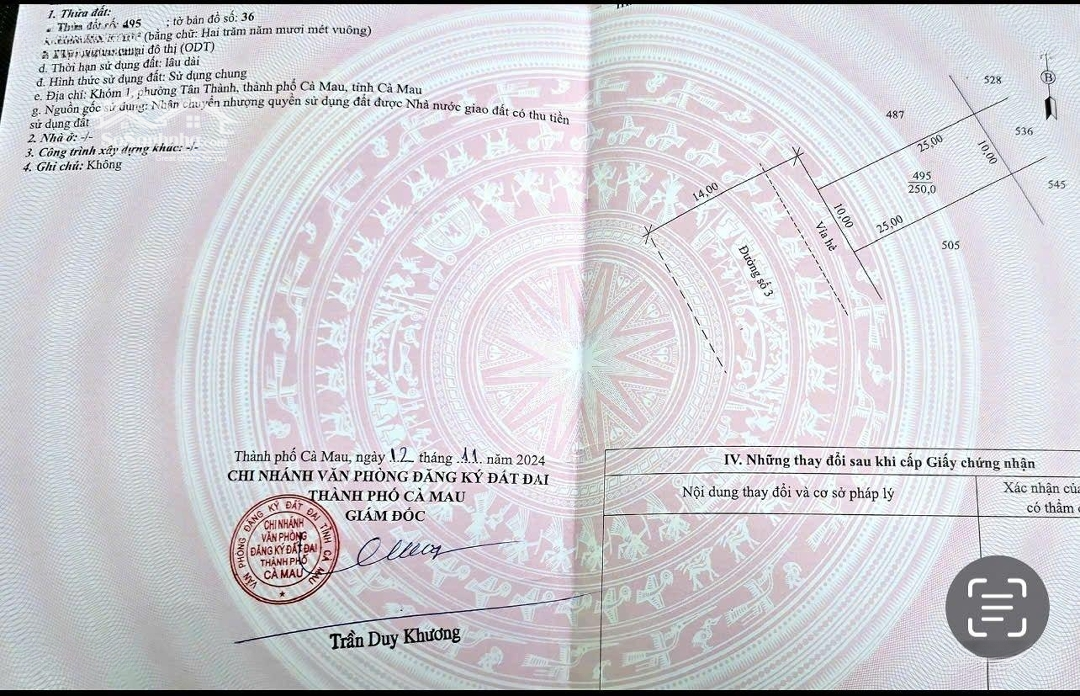 1. Thửa đất:
a. Thửa đất số: 495 ; tờ bản đồ số: 36
(bằng chữ: Hai trăm năm mươi mét vuông)
tại đô thị (ODT)
d. Thời hạn sử dụng đất: lâu dài
đ. Hình thức sử dụng đất: Sử dụng chung
e. Địa chỉ: Khóm 1, phường Tân Thành, thành phố Cà Mau, tỉnh Cà Mau
g. Nguồn gốc sử dụng: Nhận chuyển nhượng quyền sử dụng đất được Nhà nước giao đất có thu tiền
sử dụng đất
2. Nhà ở: -/-
3. Công trình xây dựng khác: -/-
4. Ghi chú: Không
B
528
487
536
25,00
10,00
495
250,0
545
14,00
10,00
25,00
Vỉa hè
505
Đường số 3
Thành phố Cà Mau, ngày 12 tháng 11 năm 2024
CHI NHÁNH VĂN PHÒNG ĐĂNG KÝ ĐẤT ĐAI
THÀNH PHỐ CÀ MAU
GIÁM ĐỐC
VĂN PHÒNG ĐĂNG KÝ ĐẤT ĐAI TỈNH CÀ MAU
CHI NHÁNH
VĂN PHÒNG
ĐĂNG KÝ ĐẤT ĐAI
THÀNH PHỐ
CÀ MAU
Trần Duy Khương
IV. Những thay đổi sau khi cấp Giấy chứng nhận
Nội dung thay đổi và cơ sở pháp lý
Xác nhận của
có thẩm